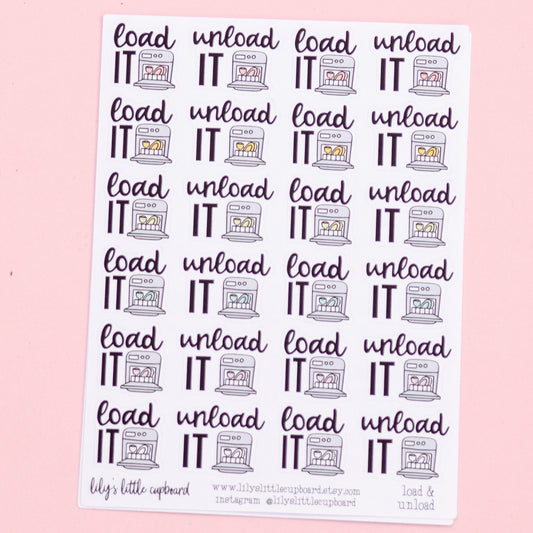 load unload load unload
IT IT IT IT
load unload load unload
IT IT IT IT
load unload load unload
IT IT IT IT
load unload load unload
IT IT IT IT
load unload load unload
IT IT IT IT
load unload load unload
IT IT IT IT
lily's little cupboard
www.lilyslittlecupboard.etsy.com
instagram @lilyslittlecupboard
load &
unload